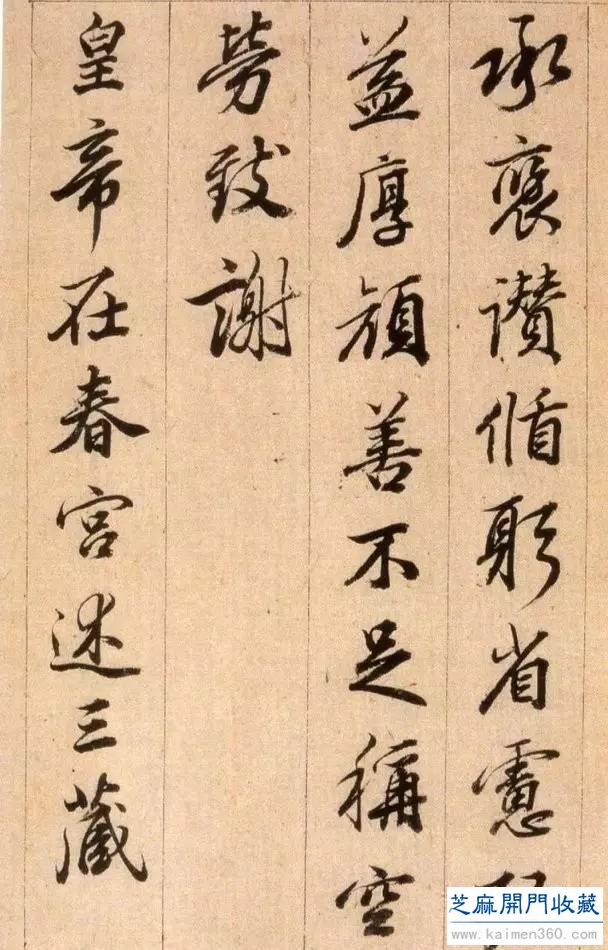 承褒讚循躬省慮
益厚顏善不足稱空
勞致謝
皇帝在春宮述三藏
芝麻開門收藏
www.kaimen360.com